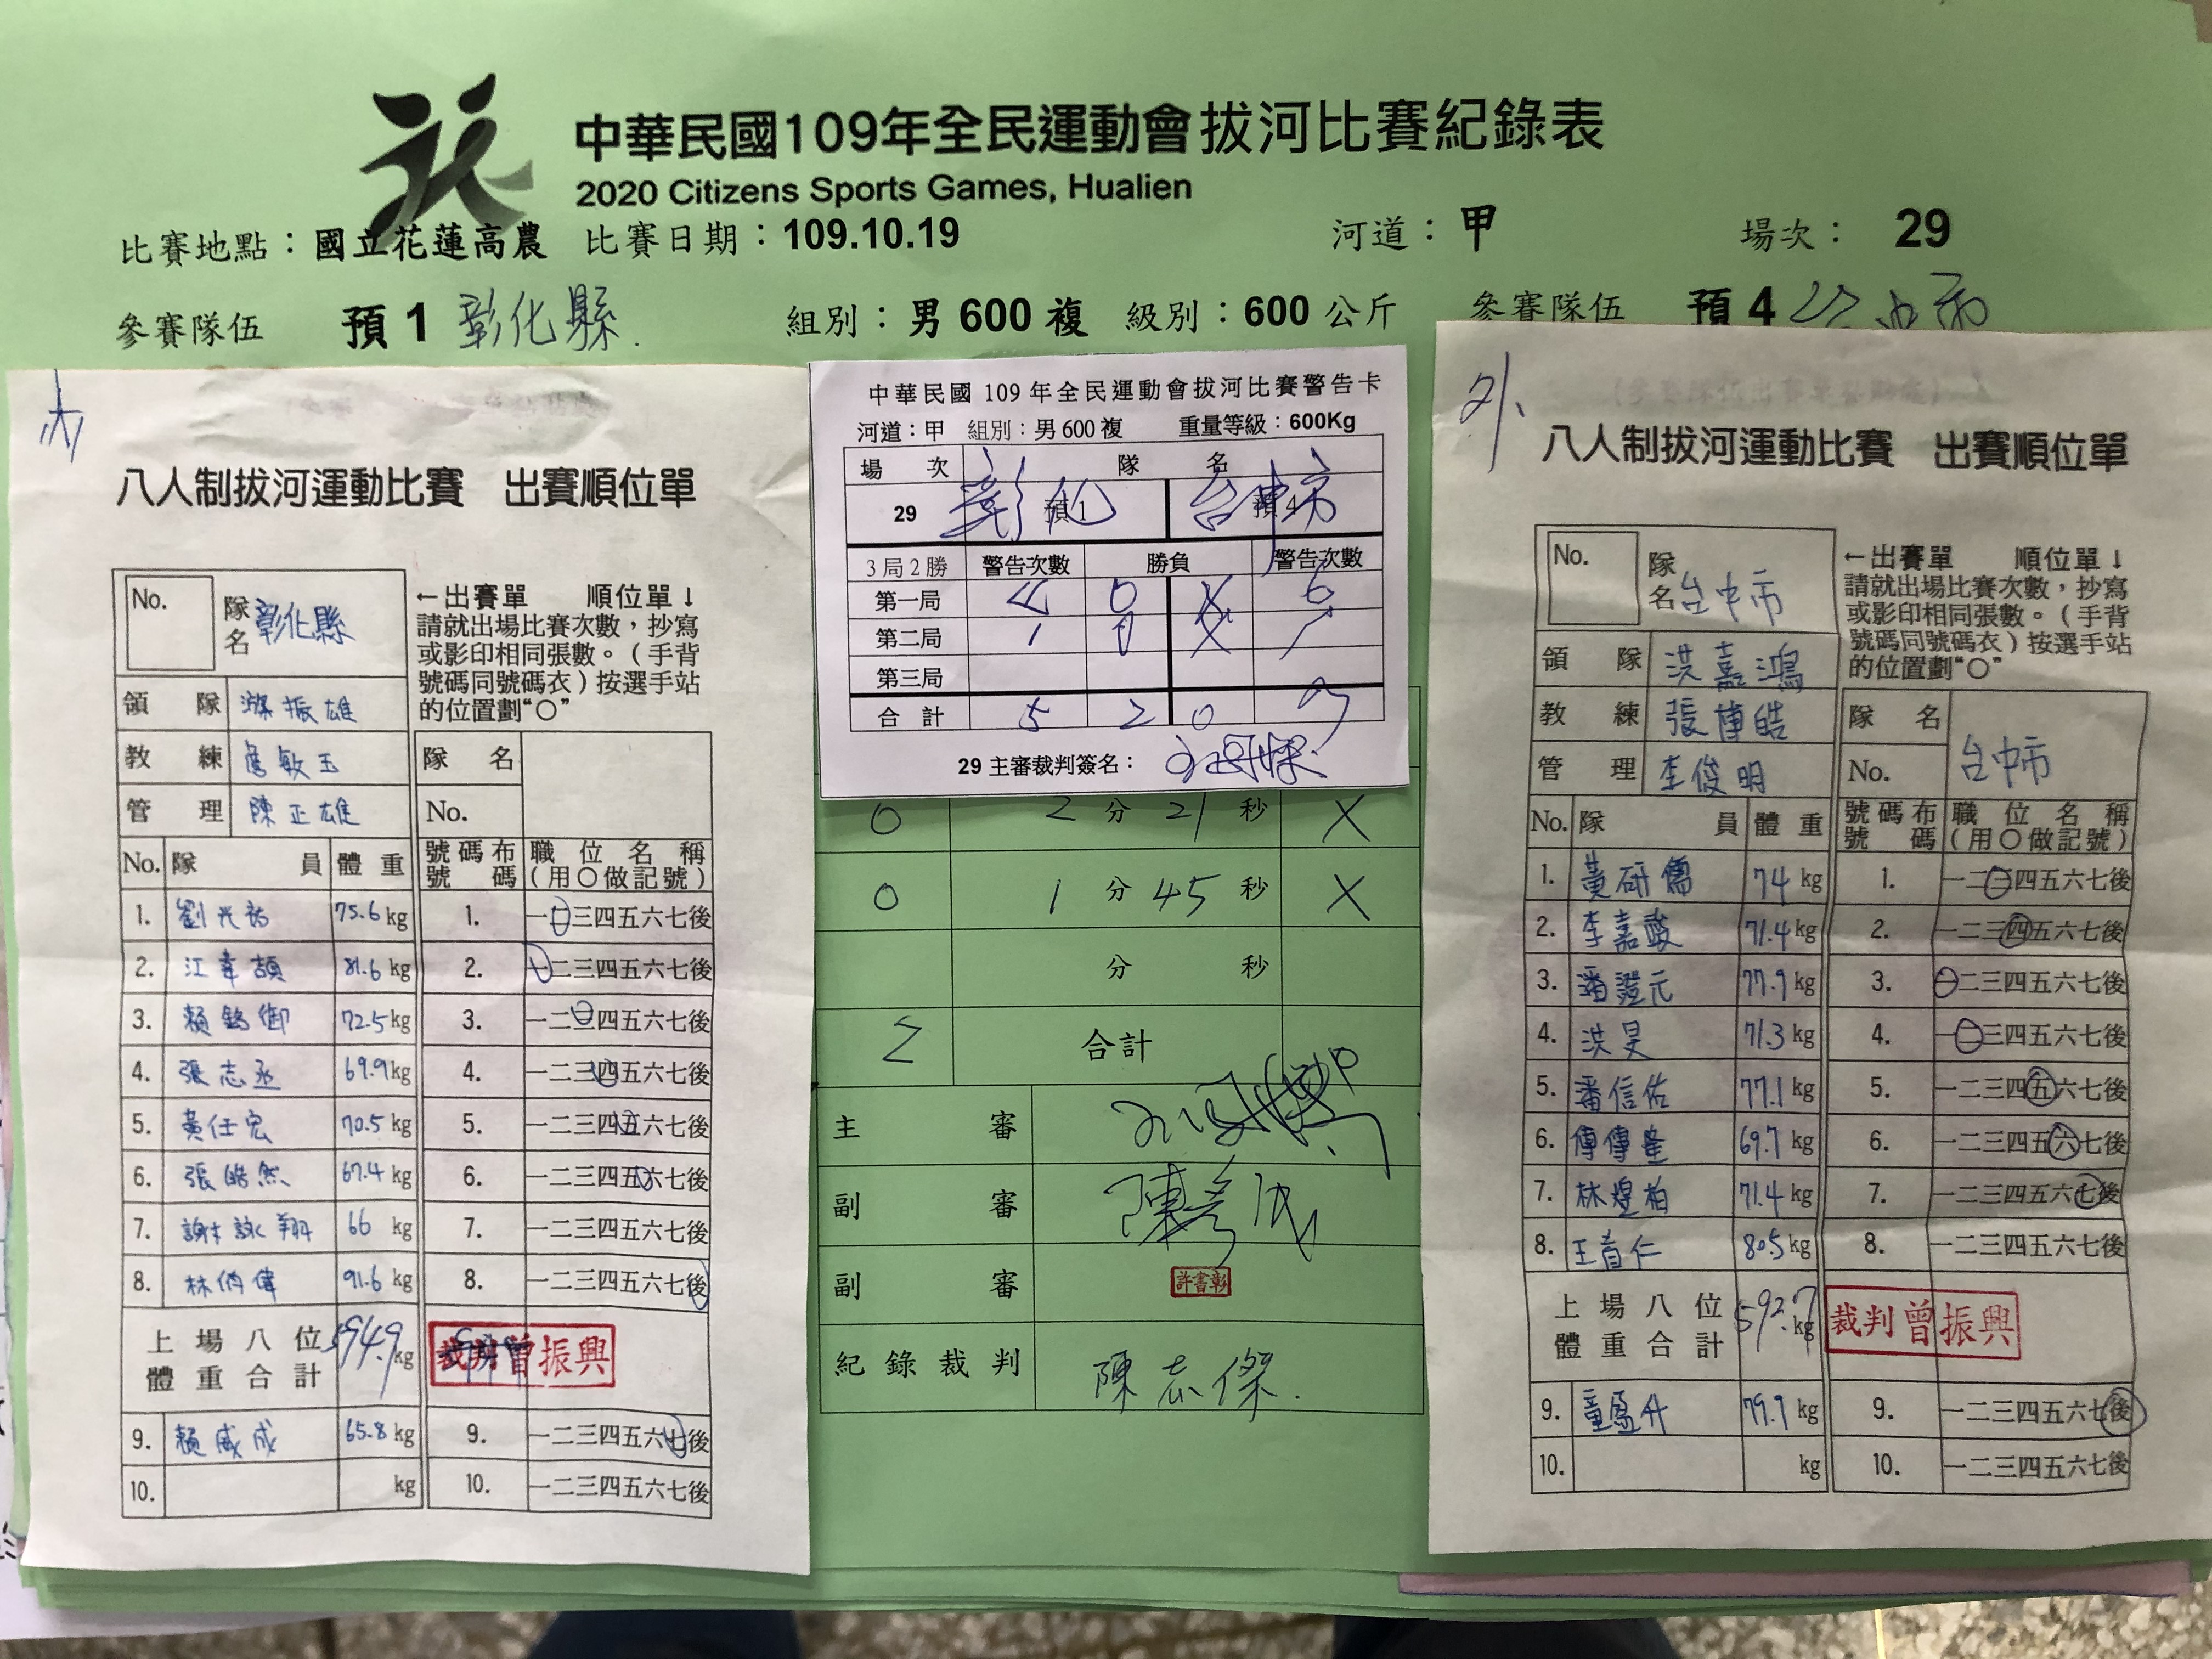 中華民國109年全民運動會拔河比賽紀錄表
2020 Citizens Sports Games, Hualien
比賽地點：國立花蓮高農 比賽日期：109.10.19 河道：甲 場次： 29
參賽隊伍 預 1 彰化縣. 組別：男 600 複 級別：600 公斤 參賽隊伍 預 4
內
八人制拔河運動比賽 出賽順位單
No. 隊名 彰化縣
←出賽單 順位單↓
請就出場比賽次數，抄寫
或影印相同張數。（手背
號碼同號碼衣）按選手站
的位置劃“○”
領隊 振雄
教練 詹敏玉
管理 陳正雄
隊名
No.
No. 隊員 體重 號碼布號碼 職位名稱（用○做記號）
1. 75.6 kg 1. 一二三四五六七後
2. 81.6 kg 2. 一二三四五六七後
3. 72.5 kg 3. 一二三四五六七後
4. 張志丞 69.9 kg 4. 一二三四五六七後
5. 黃任宏 70.5 kg 5. 一二三四五六七後
6. 張皓然 67.4 kg 6. 一二三四五六七後
7. 謝詠翔 66 kg 7. 一二三四五六七後
8. 林俏偉 91.6 kg 8. 一二三四五六七後
上場八位體重合計 594.9 kg 裁判曾振興
9. 賴威成 65.8 kg 9. 一二三四五六七後
10. kg 10. 一二三四五六七後
中華民國 109 年全民運動會拔河比賽警告卡
河道：甲 組別：男 600 複 重量等級：600Kg
場次 隊名
29 彰化 預 1 台中市 預 4
3 局 2 勝 警告次數 勝負 警告次數
第一局 O X 6
第二局 1 O X 1
第三局
合計 5 2 0 7
29 主審裁判簽名：
O 2 分 21 秒 X
O 1 分 45 秒 X
分 秒
2 合計
主審
副審
副審 許書彰
紀錄裁判 陳志傑.
外
八人制拔河運動比賽 出賽順位單
No. 隊名 台中市
←出賽單 順位單↓
請就出場比賽次數，抄寫
或影印相同張數。（手背
號碼同號碼衣）按選手站
的位置劃“○”
領隊 洪嘉鴻
教練 張博皓
管理 李俊明
隊名 台中市
No.
No. 隊員 體重 號碼布號碼 職位名稱（用○做記號）
1. 黃研儒 74 kg 1. 一二三四五六七後
2. 李嘉駿 71.4 kg 2. 一二三四五六七後
3. 潘證元 77.9 kg 3. 一二三四五六七後
4. 洪旻 71.3 kg 4. 一二三四五六七後
5. 潘信佑 77.1 kg 5. 一二三四五六七後
6. 69.7 kg 6. 一二三四五六七後
7. 林煌柏 71.4 kg 7. 一二三四五六七後
8. 王首仁 80.5 kg 8. 一二三四五六七後
上場八位體重合計 592.7 kg 裁判曾振興
9. 童盈升 79.9 kg 9. 一二三四五六七後
10. kg 10. 一二三四五六七後